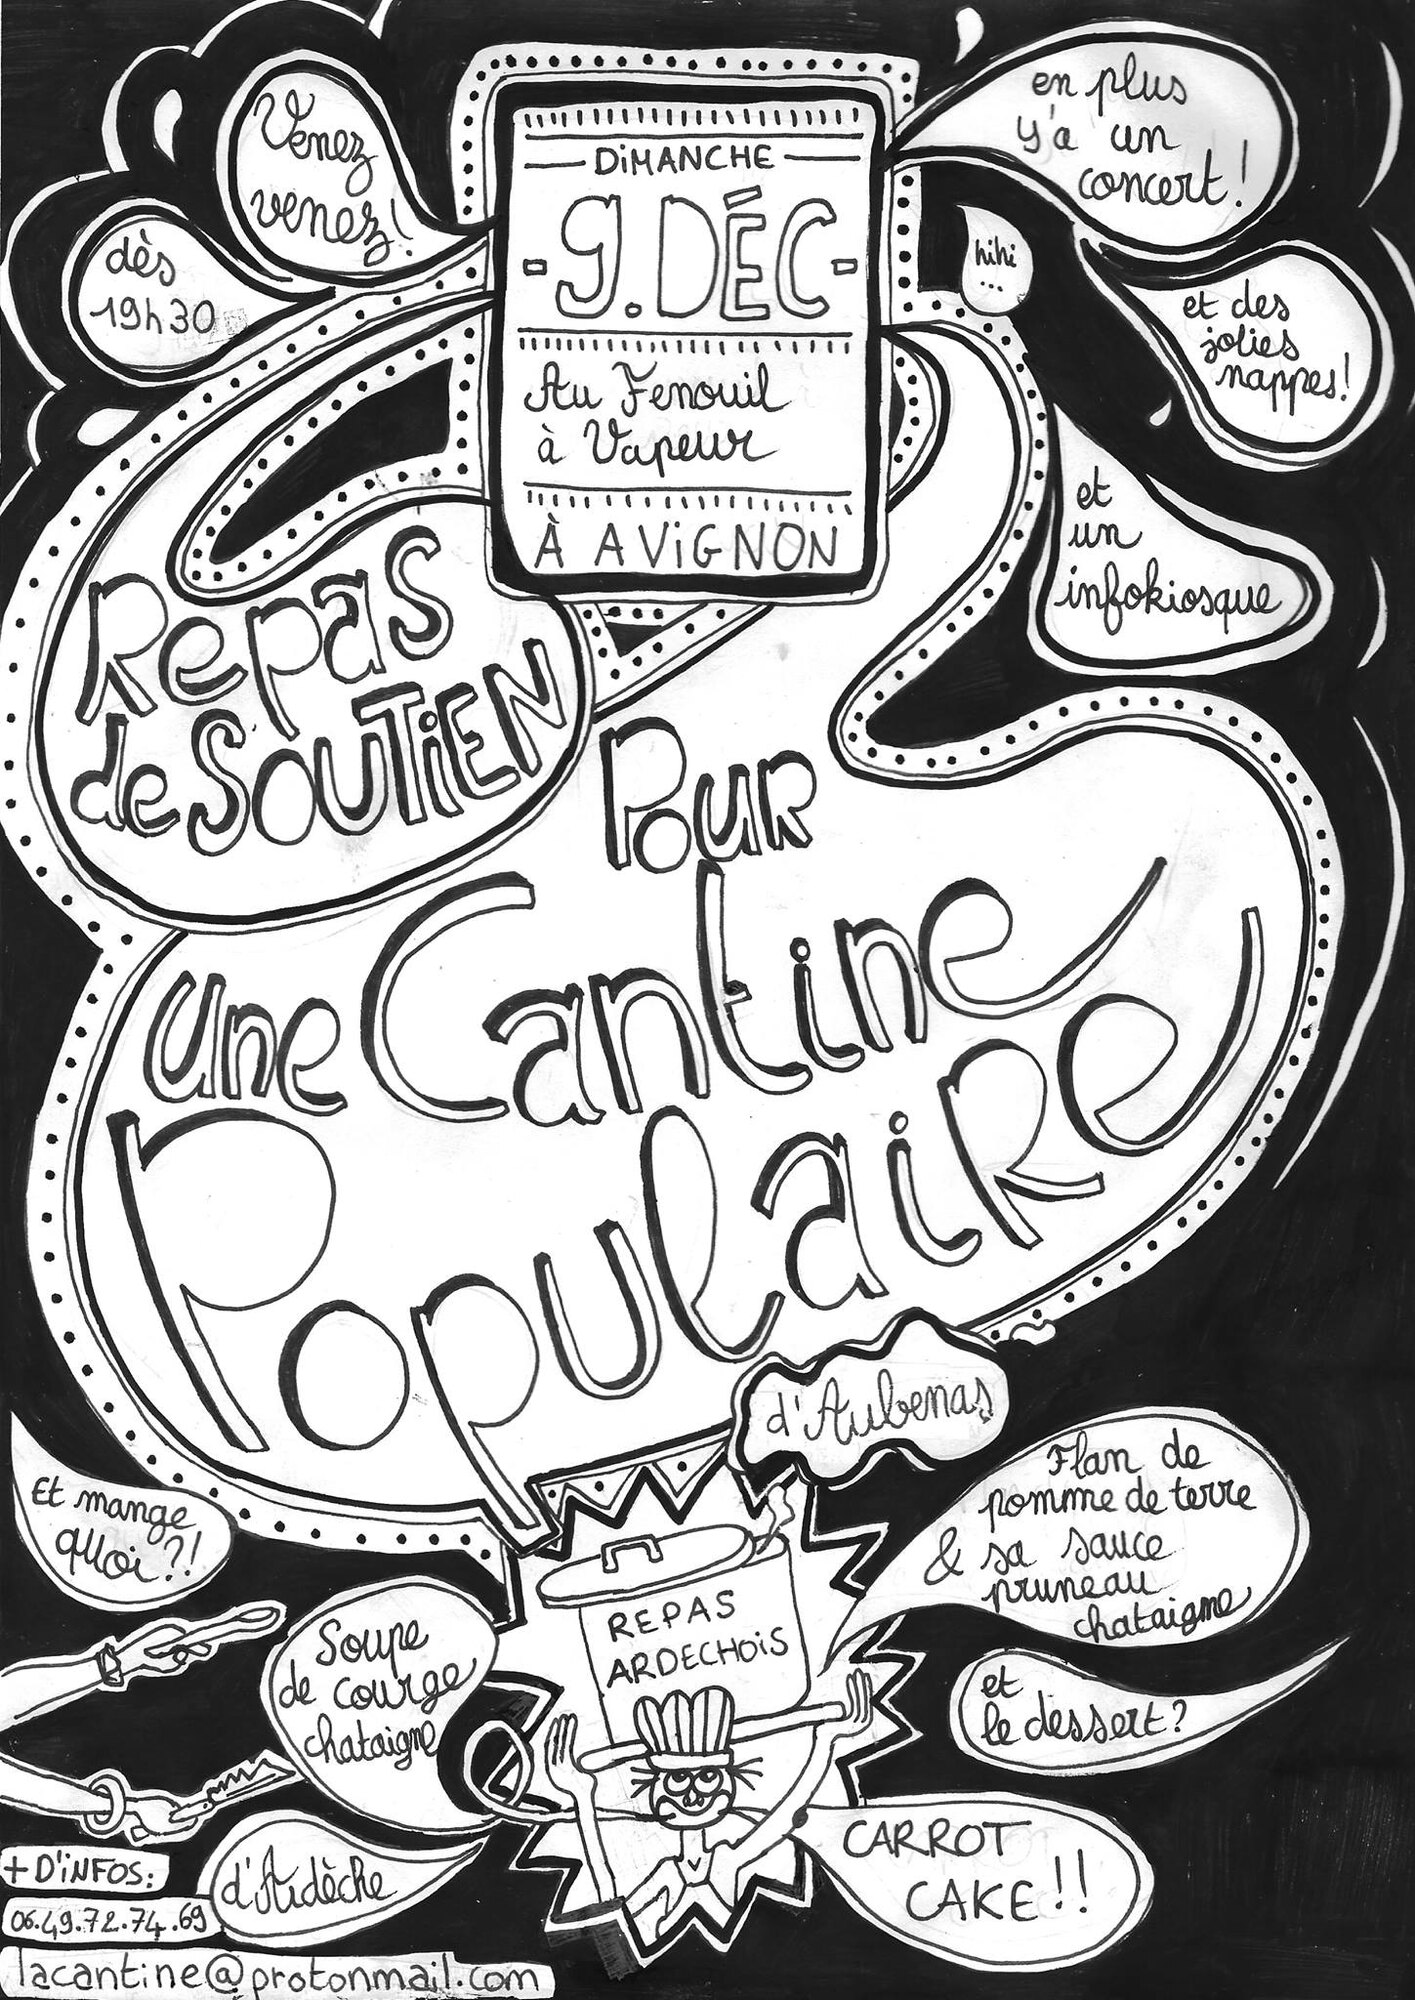 Venez
venez!
dès
19h30
DiMANCHE
- 9. DÉC -
Au Fenouil
à Vapeur
À AViGNON
en plus
y'a un
concert!
hihi
...
et des
jolies
nappes!
et
un
infokiosque
Repas
de SOUTiEN
Pour
une Cantine
Populaire
d'Aubenas
Et mange
quoi?!
Soupe
de courge
chataigne
d'Ardèche
REPAS
ARDECHOiS
Flan de
pomme de terre
& sa sauce
pruneau
chataigne
et
le dessert?
CARROT
CAKE!!
+ D'iNFOS:
06.49.72.74.69
lacantine@protonmail.com